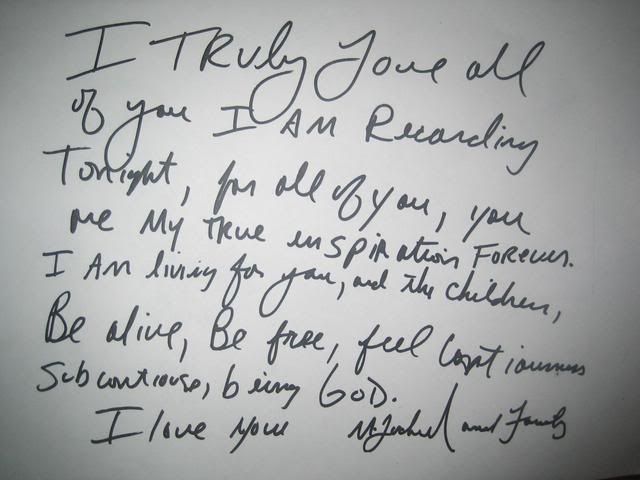 I TRuly Love all
of you I AM Recording
Tonight, for all of you, you
are My TRUE inspiration Forever.
I AM living for you, and the children,
Be alive, Be free, feel
being GOD.
I love you Michael and Family